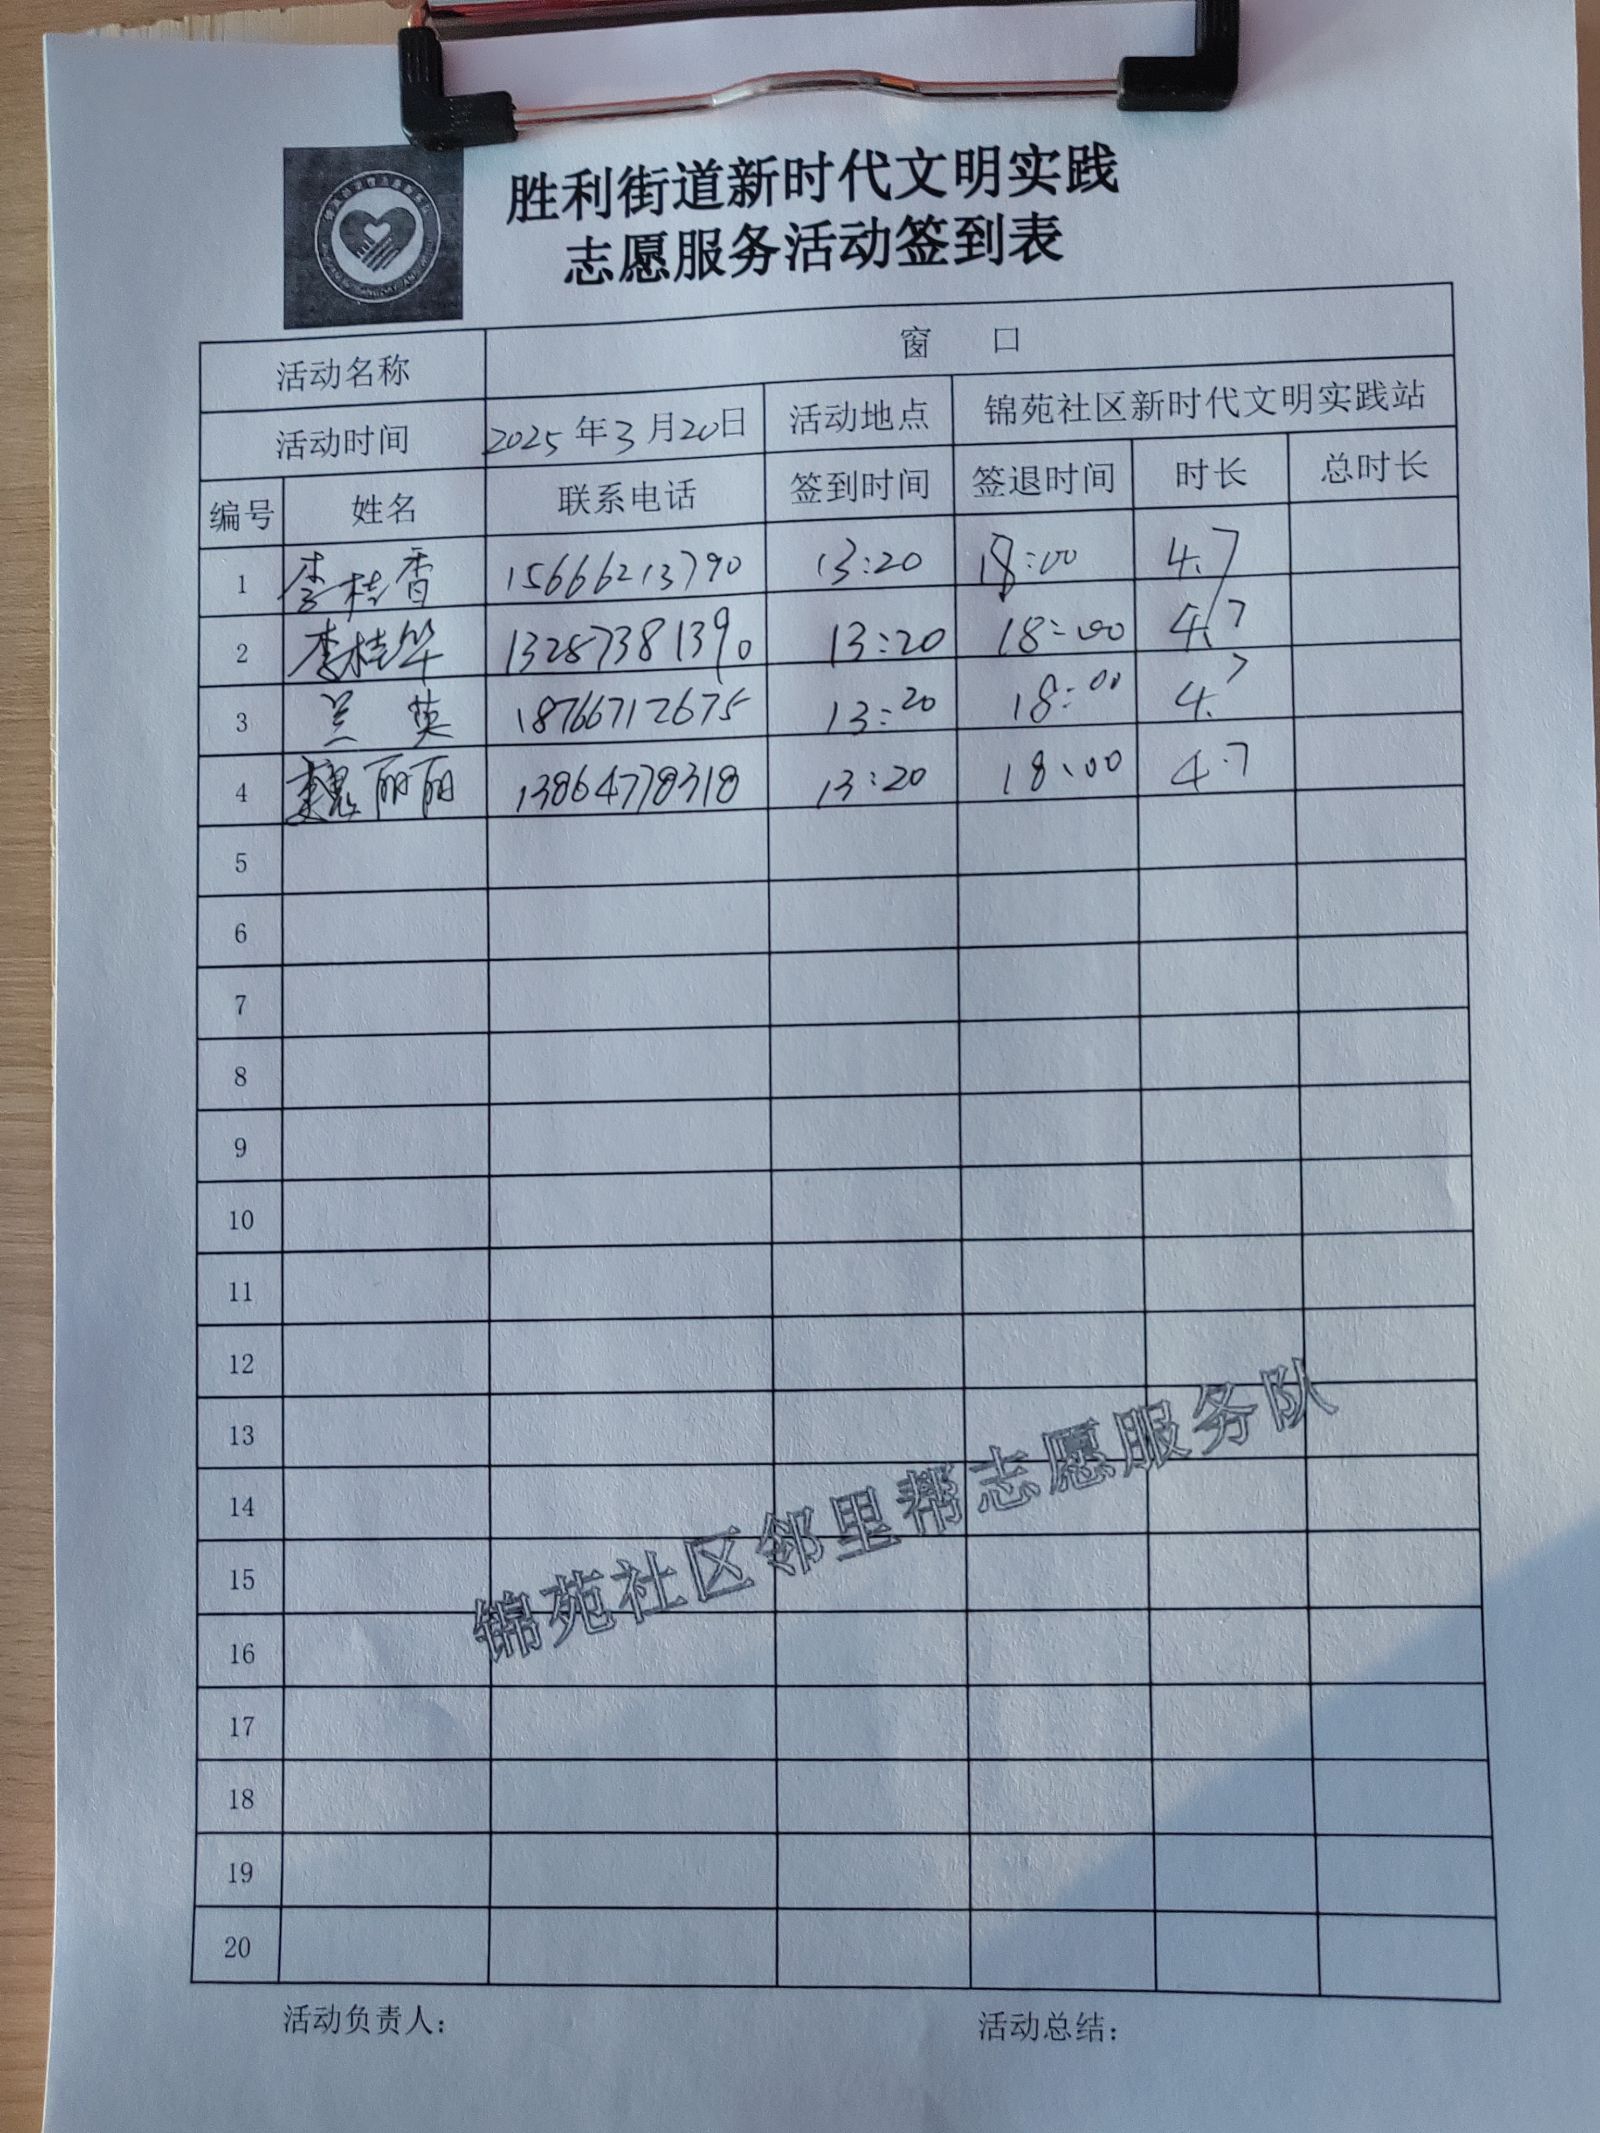 胜利街道新时代文明实践
志愿服务活动签到表
活动名称 窗 口
活动时间 2025年3月20日 活动地点 锦苑社区新时代文明实践站
编号 姓名 联系电话 签到时间 签退时间 时长 总时长
1 李桂香 15666213790 13:20 18:00 4.7
2 李桂华 13287381390 13:20 18:00 4.7
3 兰英 18766712675 13:20 18:00 4.7
4 魏丽丽 13864778318 13:20 18:00 4.7
5
6
7
8
9
10
11
12
13
14
15
16
17
18
19
20
锦苑社区邻里帮志愿服务队
活动负责人： 活动总结：